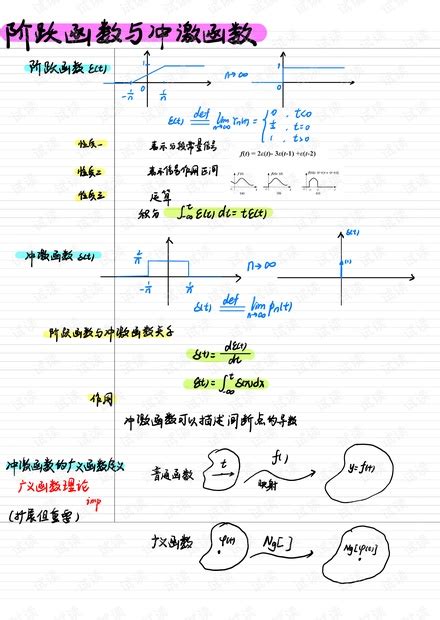 阶跃函数与冲激函数
阶跃函数 ε(t)
1
-1/n 0 1/n
n→∞
1
0
ε(t) def= lim n→∞ γn(t) = { 0 , t<0
1/2 , t=0
1 , t>0
性质一 表示分段常量信号
f(t) = 2ε(t)- 3ε(t-1) +ε(t-2)
性质二 表示信号作用区间
性质三 运算
积分 ∫-∞^t ε(τ) dτ = tε(t)
冲激函数 δ(t)
-1/n 1/n
n→∞
δ(t)
(1)
δ(t) def= lim n→∞ pn(t)
阶跃函数与冲激函数关系
δ(t) = dε(t)/dt
ε(t) = ∫-∞^t δ(τ)dτ
作用
冲激函数可以描述间断点的导数
冲激函数的广义函数定义
广义函数理论
imp
(扩展但重要)
普通函数 t f() 映射 y=f(t)
广义函数 φ(t) Ng[ ] Ng[φ(t)]